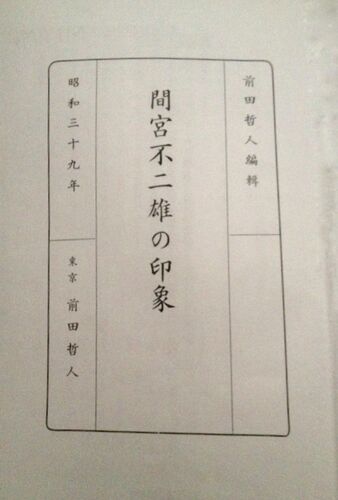 前田哲人編輯
間宮不二雄の印象
昭和三十九年
東京 前田哲人